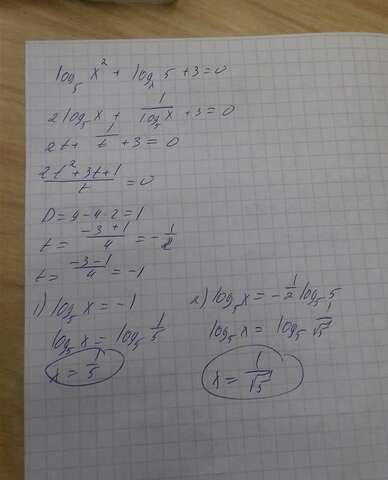 log₅ x² + logₓ 5 + 3 = 0
2 log₅ x + 1/(log₅ x) + 3 = 0
2t + 1/t + 3 = 0
(2t² + 3t + 1)/t = 0
D = 9 - 4·2 = 1
t = (-3 + 1)/4 = -1/2
t = (-3 - 1)/4 = -1
1) log₅ x = -1
log₅ x = log₅ 1/5
x = 1/5
2) log₅ x = -1/2 log₅ 5
log₅ x = log₅ 1/√5
x = 1/√5